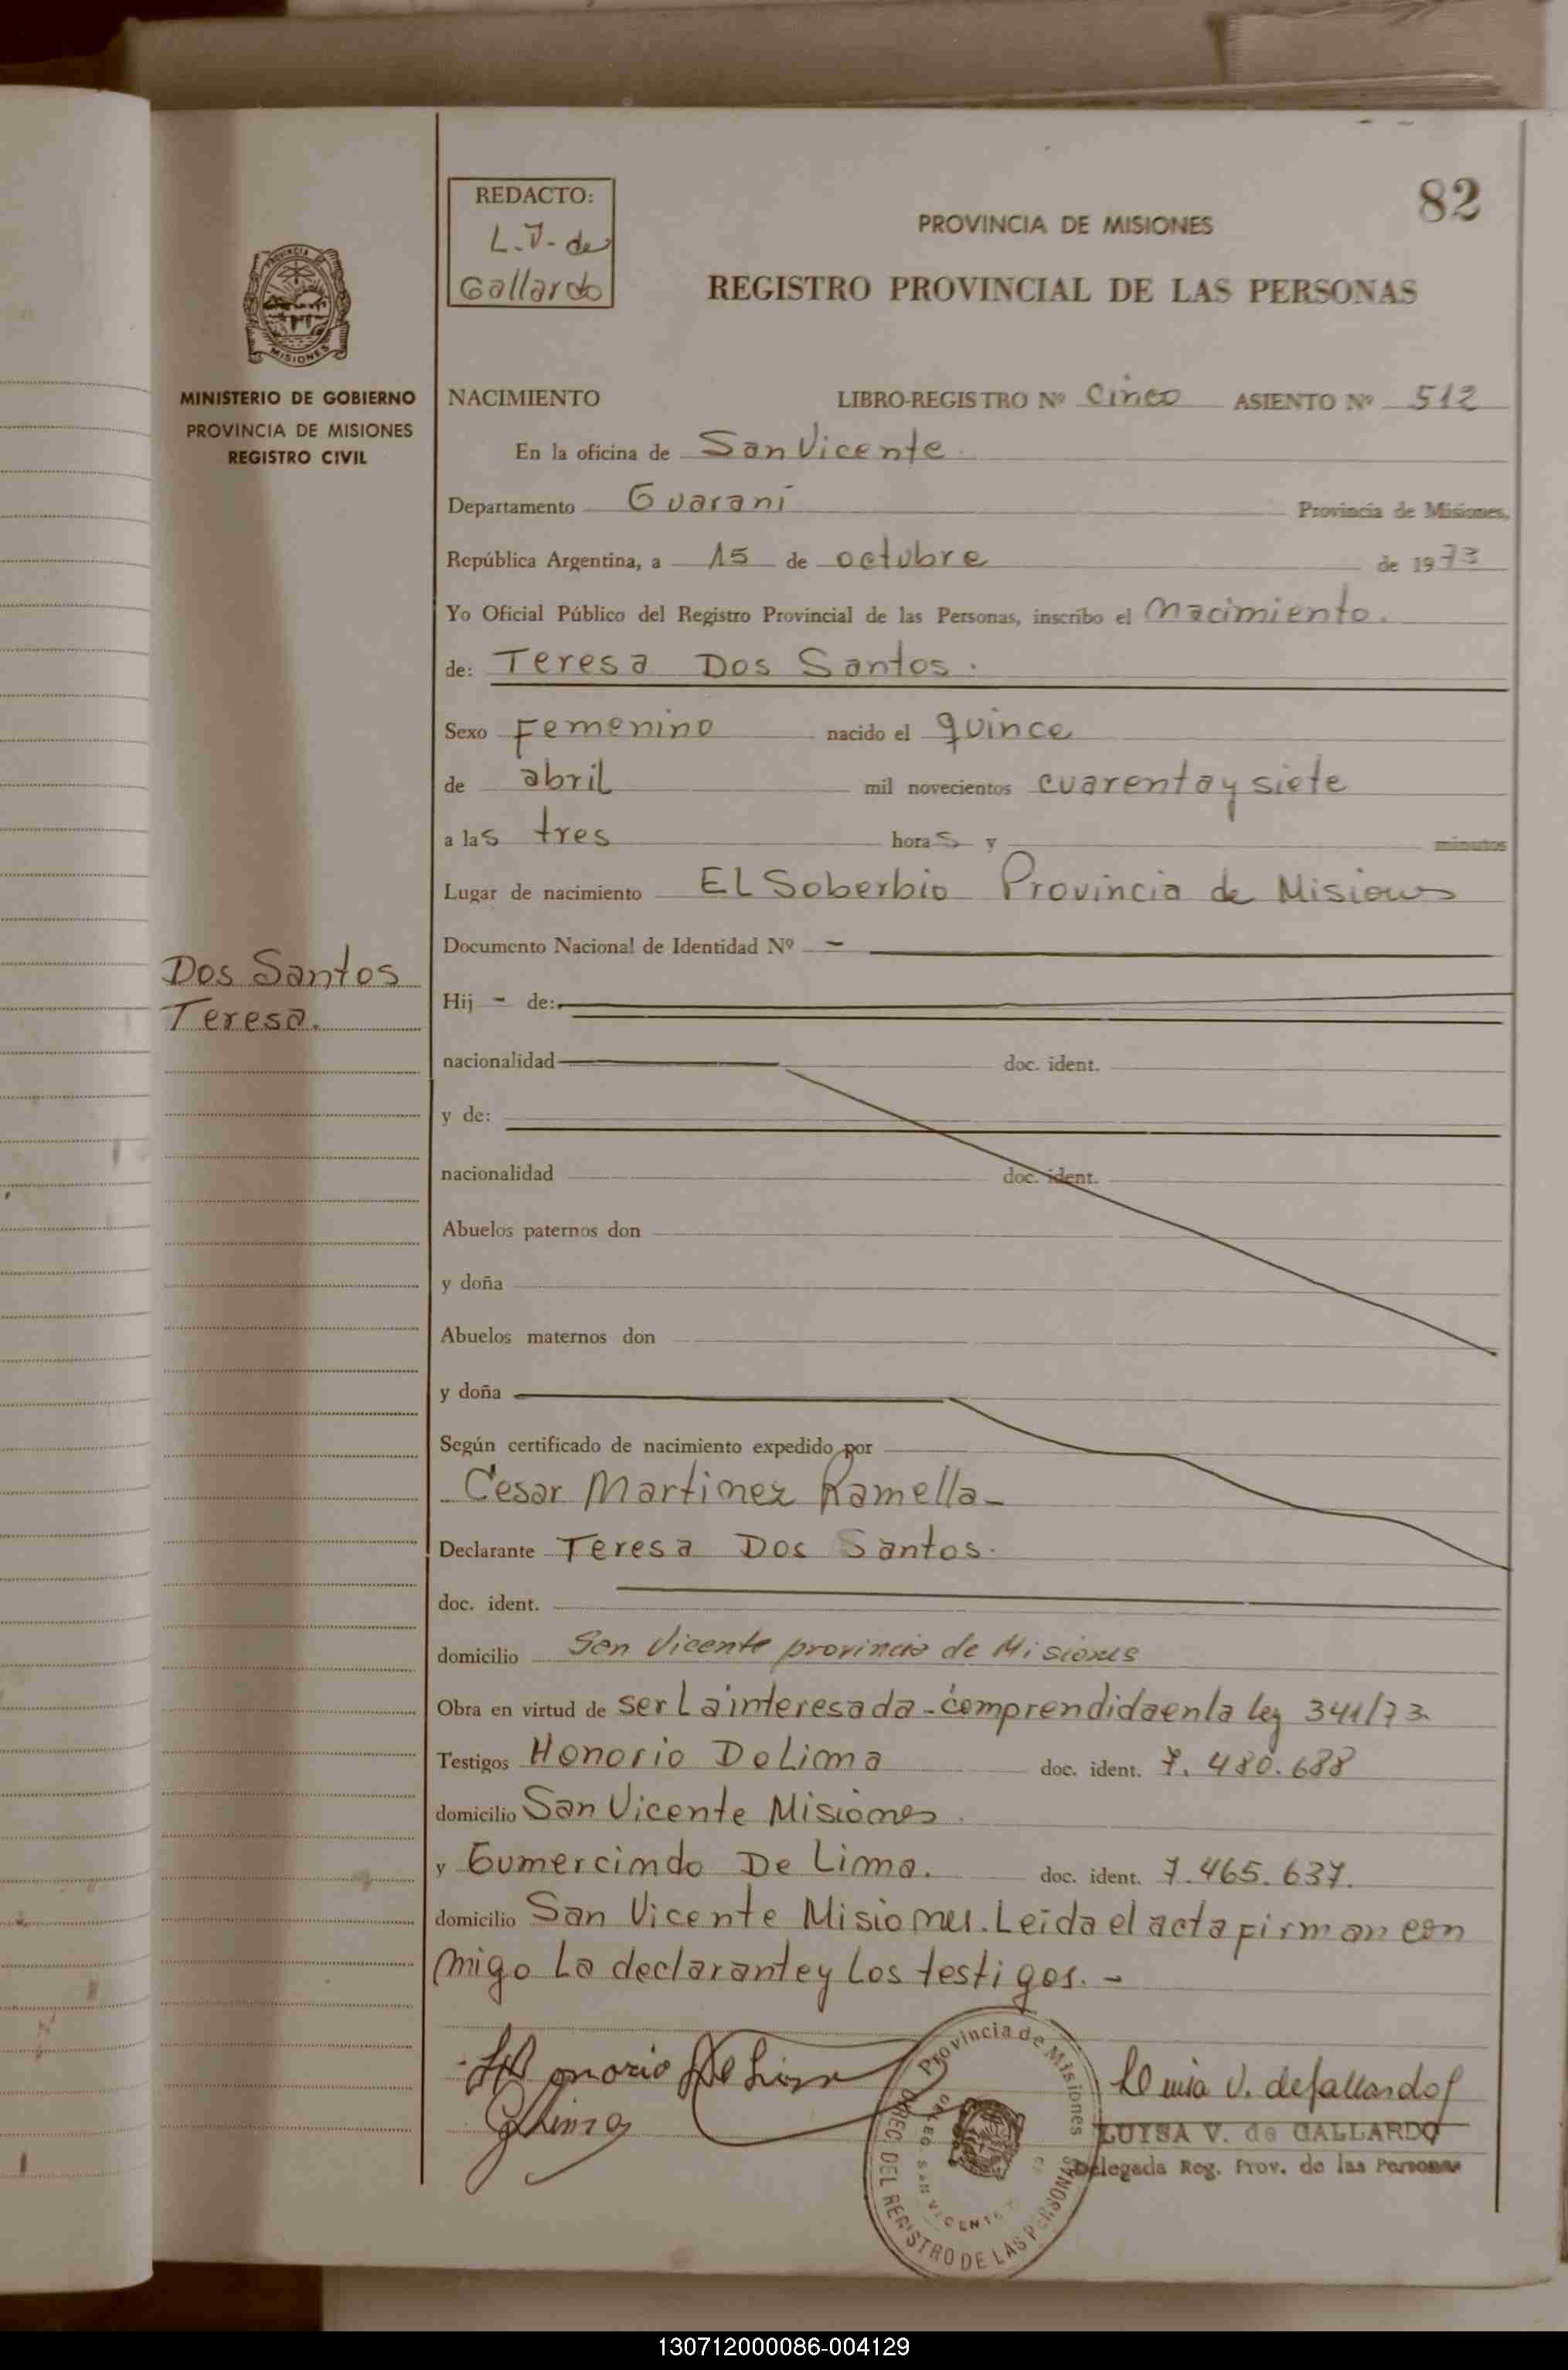 82
REDACTO:
L.V. de
Gallardo
PROVINCIA DE MISIONES
REGISTRO PROVINCIAL DE LAS PERSONAS
PROVINCIA DE
MISIONES
MINISTERIO DE GOBIERNO
PROVINCIA DE MISIONES
REGISTRO CIVIL
NACIMIENTO LIBRO-REGISTRO Nº Cinco ASIENTO Nº 512
En la oficina de San Vicente
Departamento Guaraní Provincia de Misiones,
República Argentina, a 15 de octubre de 1973
Yo Oficial Público del Registro Provincial de las Personas, inscribo el Nacimiento.
de: Teresa Dos Santos.
Sexo Femenino nacido el quince
de abril mil novecientos cuarenta y siete
a las tres horas y minutos
Lugar de nacimiento EL Soberbio Provincia de Misiones
Documento Nacional de Identidad Nº -
Dos Santos
Teresa.
Hij - de:
nacionalidad doc. ident.
y de:
nacionalidad doc. ident.
Abuelos paternos don
y doña
Abuelos maternos don
y doña
Según certificado de nacimiento expedido por
Cesar Martinez Ramella-
Declarante Teresa Dos Santos.
doc. ident.
domicilio San Vicente provincia de Misiones
Obra en virtud de ser La interesada - comprendida en la ley 341/73
Testigos Honorio De Lima doc. ident. 7.480.688
domicilio San Vicente Misiones.
y Gumercindo De Lima. doc. ident. 7.465.637.
domicilio San Vicente Misiones. Leida el acta firman con
migo La declarante y Los testigos. -
Honorio De Lima
G Lima
Luisa V. de Gallardo
LUISA V. de GALLARDO
Delegada Reg. Prov. de las Personas
Provincia de Misiones
DIREC. DEL REGISTRO DE LAS PERSONAS
DELEG. SAN VICENTE
130712000086-004129